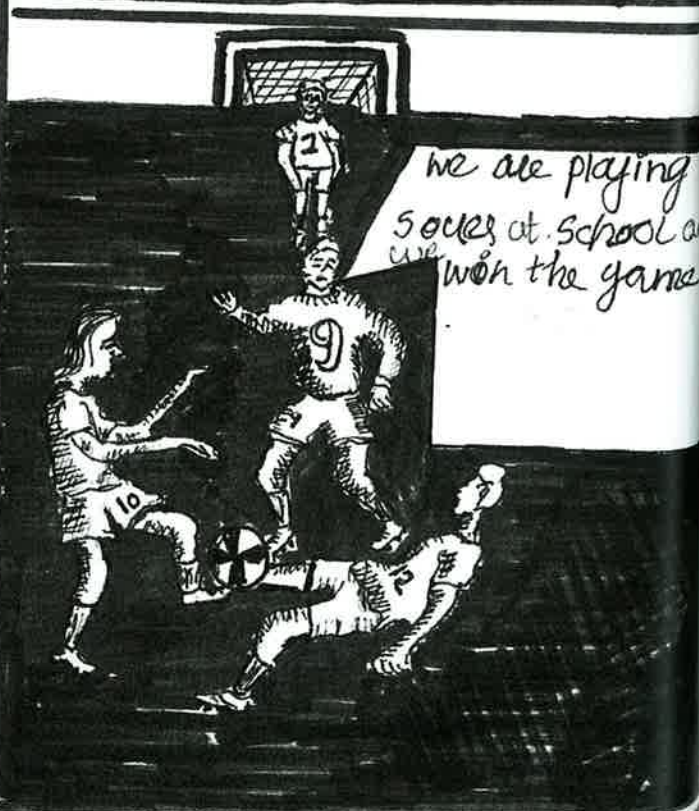 1
we are playing
soues at. School a
we won the game
9
10
12